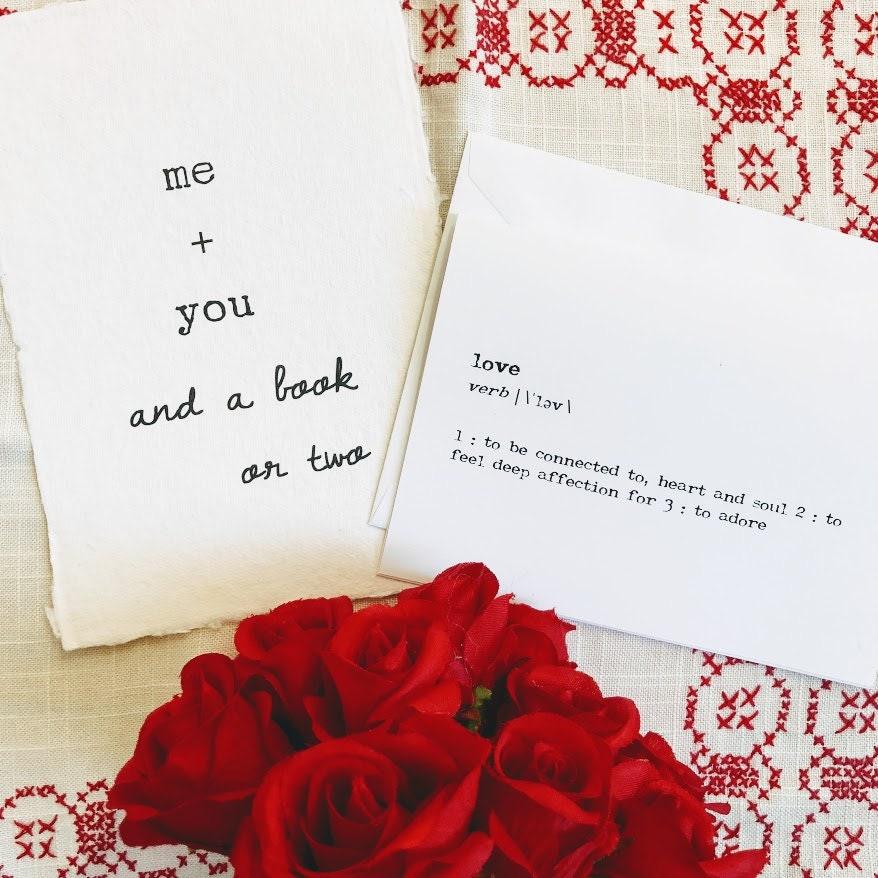 me
+
you
and a book
or two
love
verb | \ˈləv \
1 : to be connected to, heart and soul 2 : to
feel deep affection for 3 : to adore